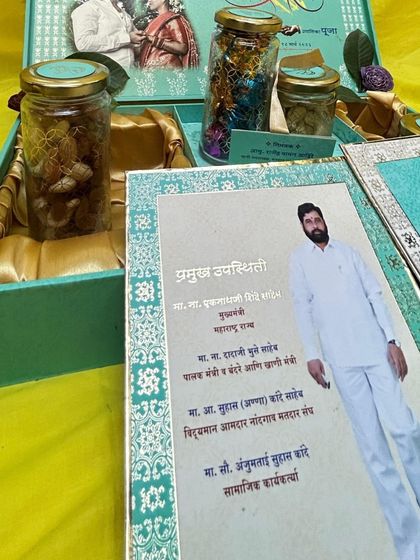 पूजा
१८ मार्च २०२३
निमंत्रक
प्रमुख उपस्थिती
मा. ना. एकनाथजी शिंदे साहेब
मुख्यमंत्री
महाराष्ट्र राज्य
मा. ना. दादाजी भुसे साहेब
पालक मंत्री व बंदरे आणि खाणी मंत्री
मा. आ. सुहास (अण्णा) कांदे साहेब
विद्यमान आमदार नांदगाव मतदार संघ
मा. सौ. अंजुमताई सुहास कांदे
सामाजिक कार्यकर्त्या